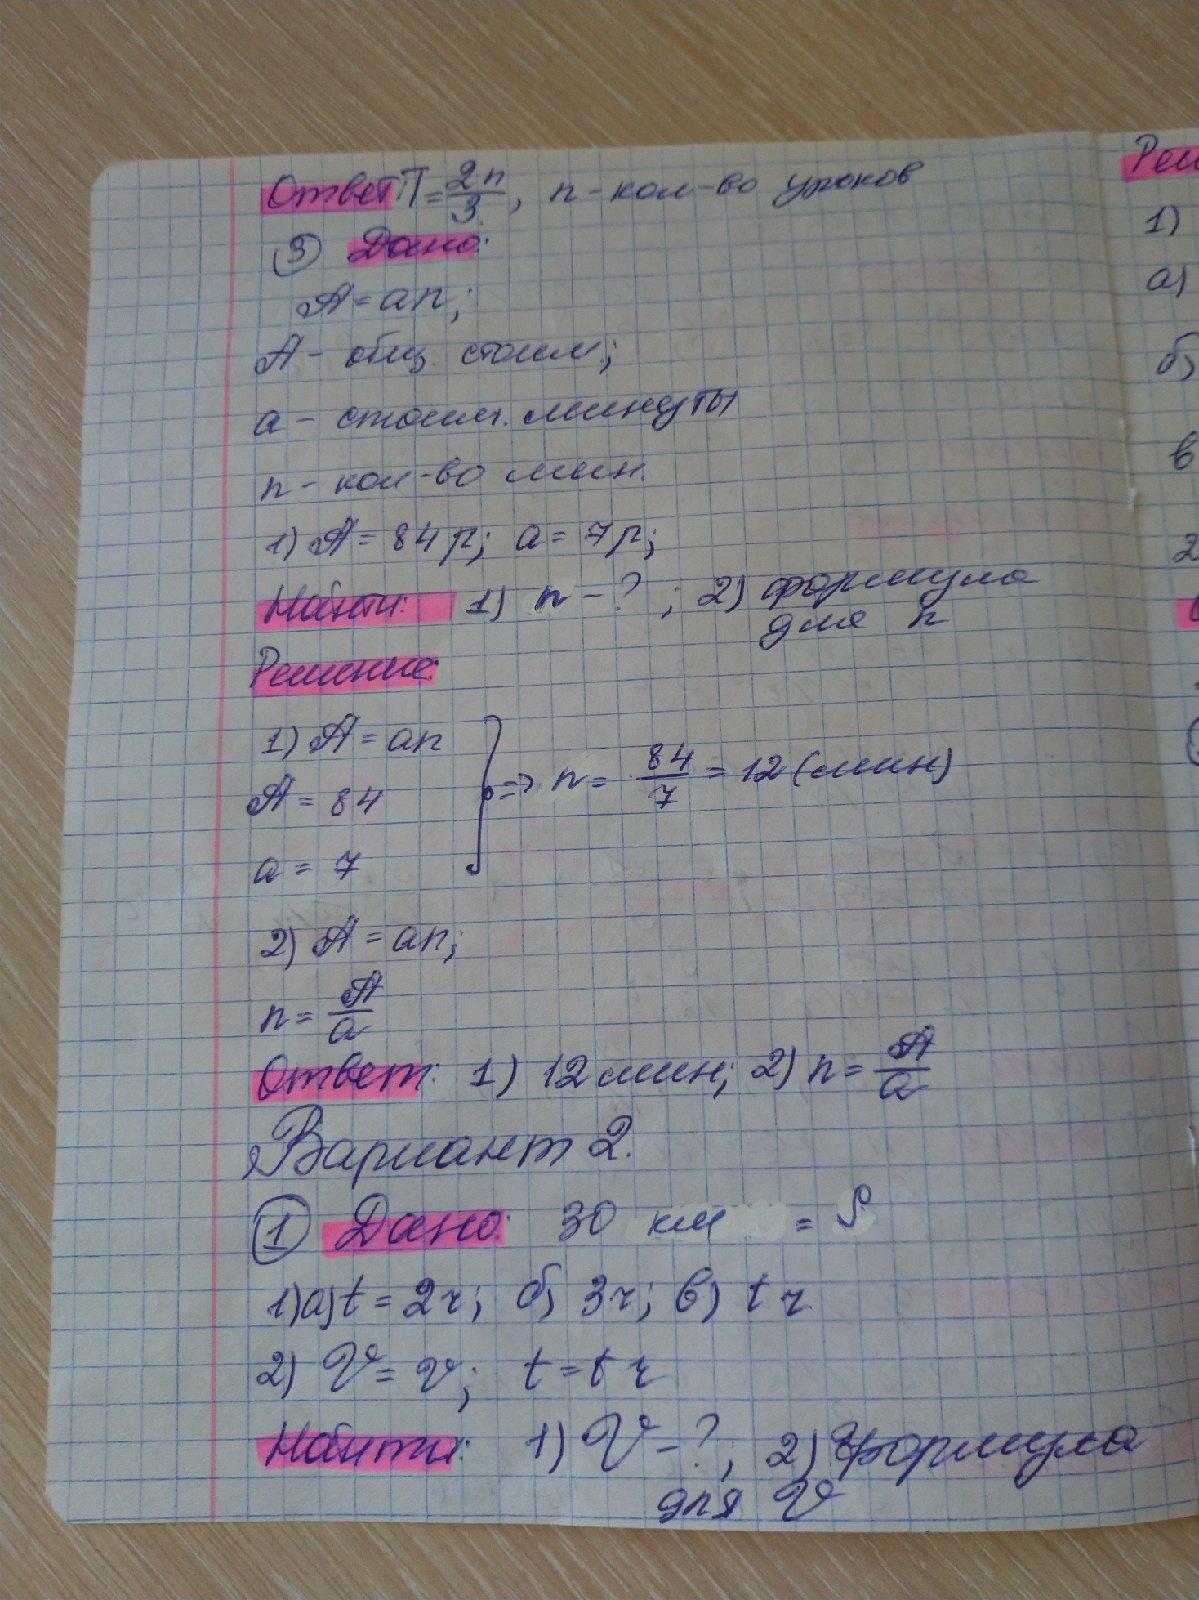 Ответ: T = 2n/3, n - кол-во уроков
③ Дано:
A = an;
A - общ стоим;
a - стоим. минуты
n - кол-во мин.
1) A = 84 р; a = 7р;
Найти: 1) n - ? ; 2) формула
для n
Решение:
1) A = an
A = 84
a = 7
=> n = 84/7 = 12 (мин)
2) A = an;
n = A/a
Ответ: 1) 12 мин; 2) n = A/a
Вариант 2.
① Дано: 30 км = S
1) а) t = 2ч; б) 3ч; в) t ч
2) V = v; t = t ч
Найти: 1) V - ?, 2) формула
для V
Реш
1)
а)
б)
в
2